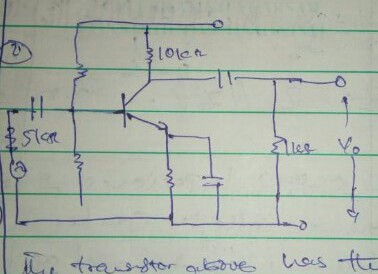 2
10kΩ
5kΩ
1kΩ
Vo
The transistor above has the